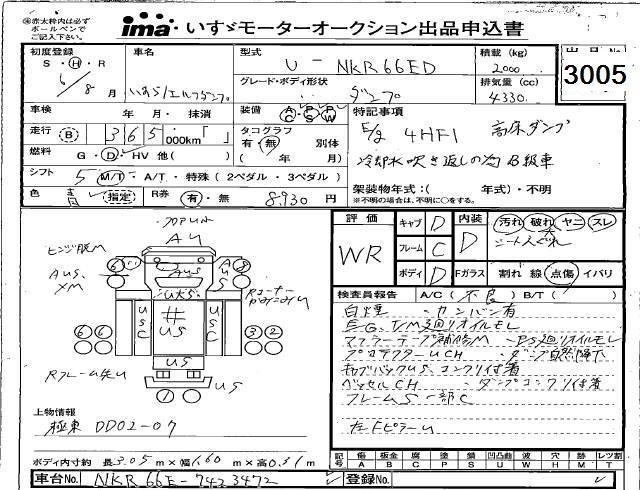 ※赤太枠内は必ず
ボールペンで
ご記入下さい。
ima いすゞモーターオークション出品申込書
初度登録 車名 型式 U-NKR66ED 積載 (kg) 2000 出品No
S・H・R 6/8月 いすゞ/エルフダンプ グレード・ボディ形状 ダンプ 排気量 (cc) 4330 3005
車検 年・月・抹消 装備 AC PS PW 特記事項
走行 B 365,000km「 」 タコグラフ 有・無 別体 E/g 4HF1 高床ダンプ
燃料 G・D・HV 他( ) ( 年 月) 冷却水吹き返しの為B級車
シフト 5 M/T・A/T・特殊(2ペダル・3ペダル)
色 青 指定 R券 有・無 8,930円 架装物年式:( 年式)・不明
※不明の場合は、不明に○をする。
評価 WR キャブ D 内装 D 汚れ 破れ ヤニ スレ
フレーム C シート大
ボディ D Fガラス 割れ 線 点傷 イバリ
フロアUM
AU
ヒンジ腐M
AUS
XM
AUS
AUS
Rコーナー
US
USC
#
US
USC
US
Rフレーム先U
US
検査員報告 A/C (不良) B/T ( )
白煙 ・カンバン有
E/G、T/M廻りオイルモレ
マフラーテープ補修M ・PS廻りオイルモレ
プロテクターUCH ・ダンプ自然降下
キャブバックUS、コンクリ付着
ベッセルCH ・ダンプコンクリ付着
フレームS一部C
左FピラーU
上物情報
極東 DD02-07
ボディ内寸約 長3.05m×幅1.60m×高0.31m
記号 傷A 板金B 腐C 塗P 錆S 凹凸凹U 波W 穴H 欠M レツ割T
車台No. NKR66E-7423472 登録No.